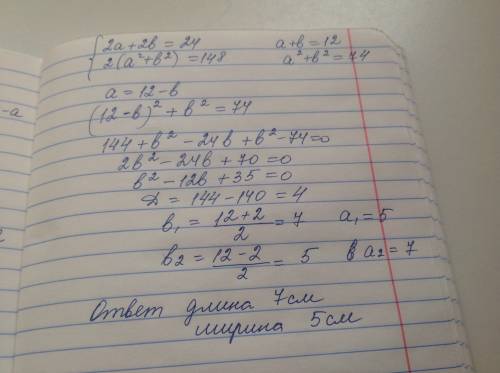 2a+2b=24 a+b=12
2(a²+b²)=148 a²+b²=74
a=12-b
(12-b)²+b²=74
144+b²-24b+b²-74=0
2b²-24b+70=0
b²-12b+35=0
D=144-140=4
b₁=(12+2)/2=7 a₁=5
b₂=(12-2)/2=5 a₂=7
Ответ длина 7см
ширина 5см
-a